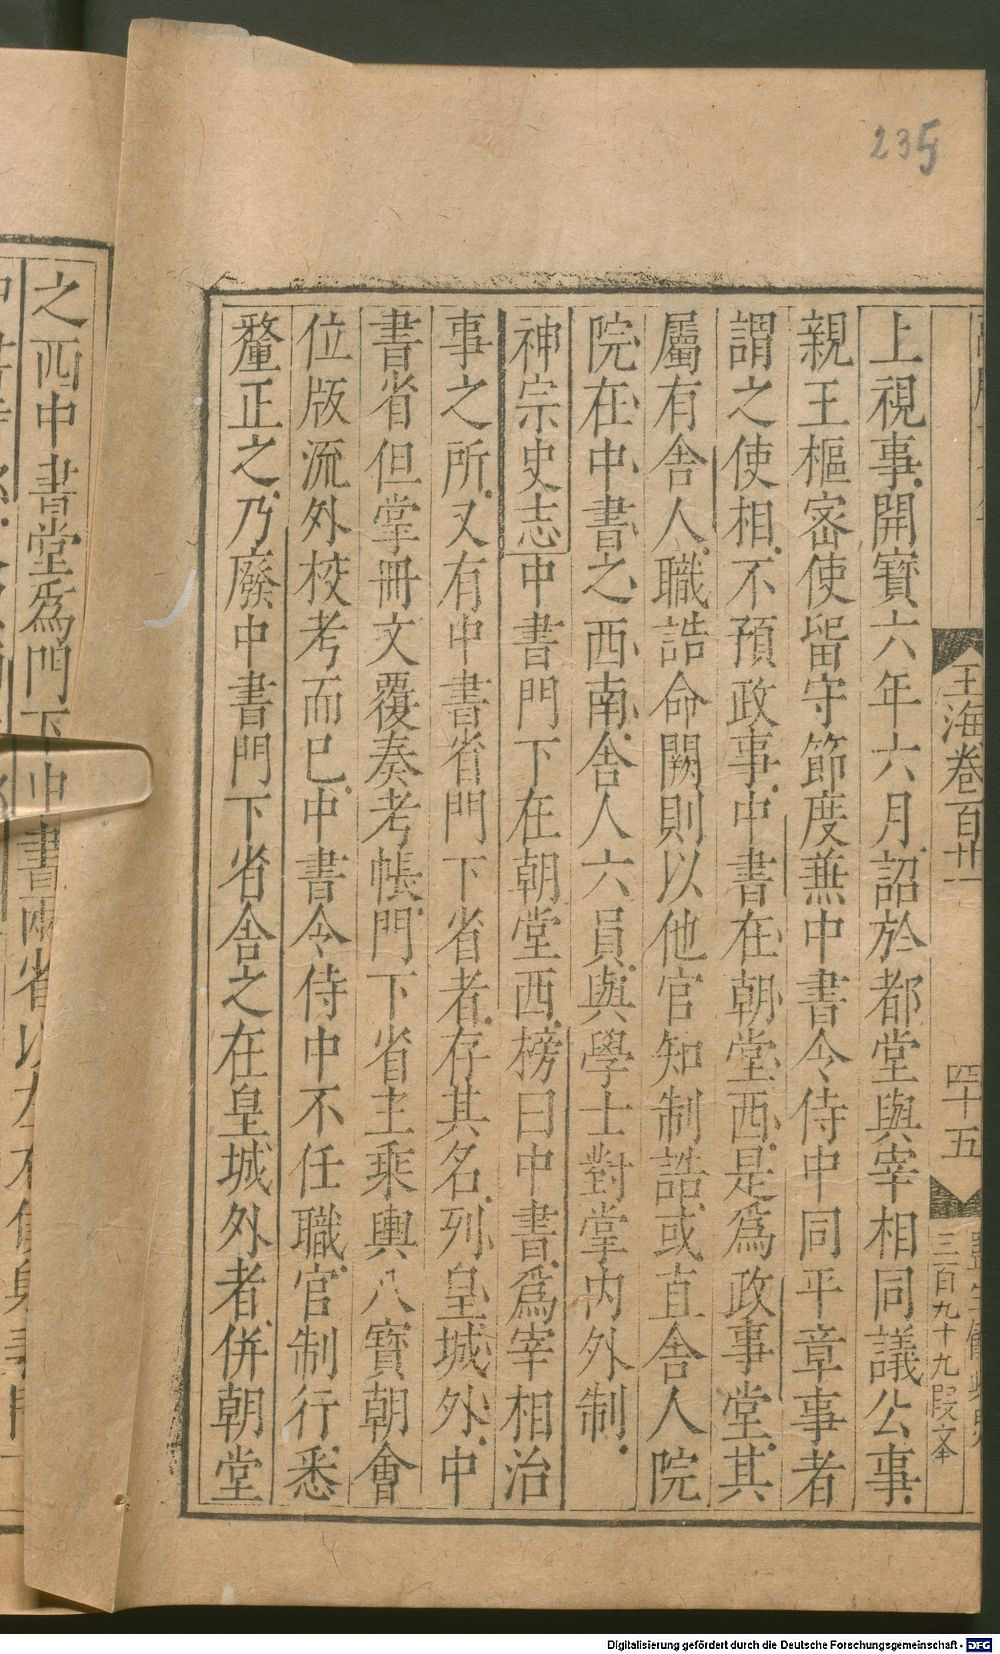 235
玉海卷百廿一
四十五
三百九十九段文
上視事開寶六年六月詔於都堂與宰相同議公事
親王樞密使留守節度兼中書令侍中同平章事者
謂之使相不預政事中書在朝堂西是爲政事堂其
屬有舍人職誥命闕則以他官知制誥或直舍人院
院在中書之西南舍人六員與學士對掌內外制
神宗史志中書門下在朝堂西榜曰中書爲宰相治
事之所又有中書省門下省者存其名列皇城外中
書省但掌冊文覆奏考帳門下省主乘輿八寶朝會
位版流外校考而已中書令侍中不任職官制行悉
釐正之乃廢中書門下省舍之在皇城外者併朝堂
之西中書堂爲門下中書兩省以左右
Digitalisierung gefördert durch die Deutsche Forschungsgemeinschaft - DFG